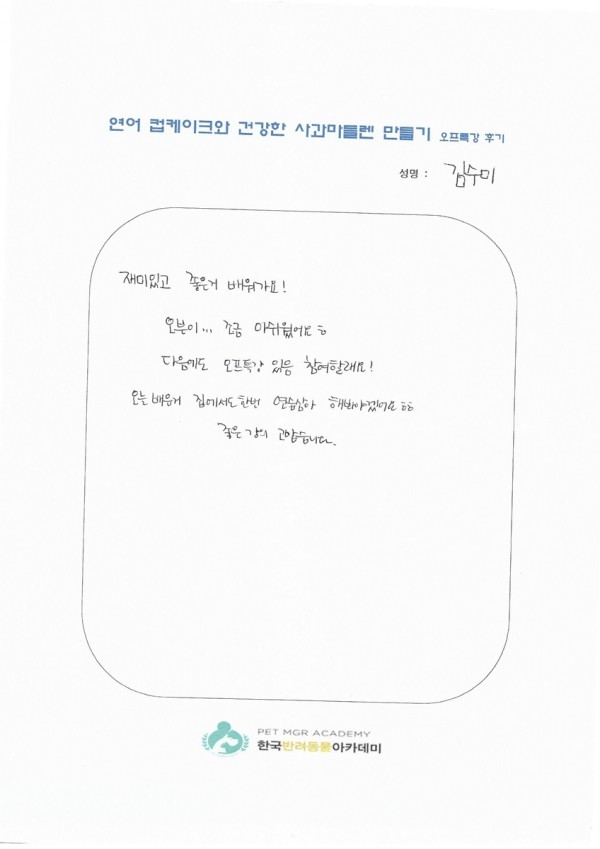 연어 컵케이크와 건강한 사과마들렌 만들기 오프특강 후기
성명 : 김수미
재미있고 좋은거 배워가요!
오븐이... 조금 아쉬웠어요ㅎ
다음에도 오프특강 있음 참여할래요!
오늘 배운거 집에서도 한번 연습삼아 해봐야겠어요ㅎㅎ
좋은 강의 고맙습니다.
PET MGR ACADEMY
한국반려동물아카데미